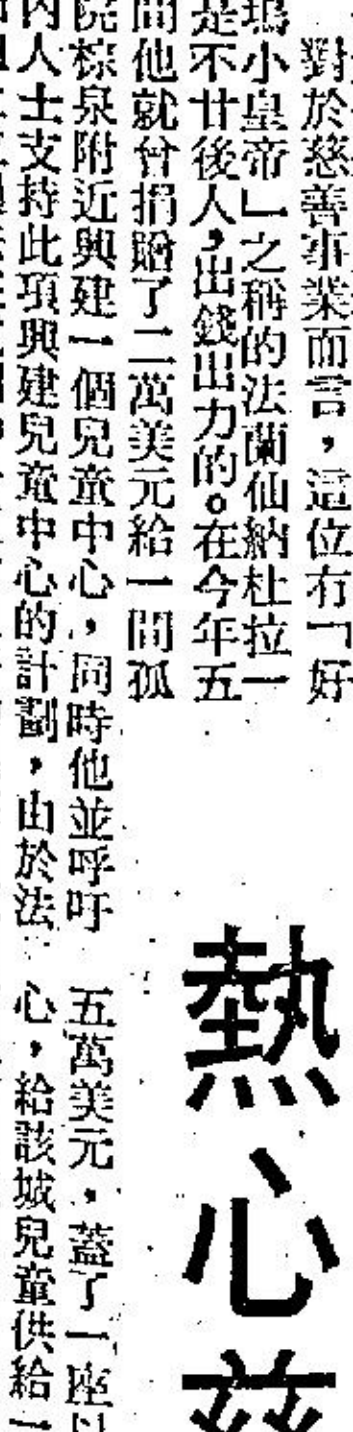 對於慈善事業而言，這位冇「好
塢小皇帝」之稱的法蘭仙納杜拉一
是不甘後人，出錢出力的。在今年五
間他就曾捐贈了二萬美元給一間孤
院棕泉附近興建一個兒童中心，同時他並呼吁
內人士支持此項興建兒童中心的計劃，由於法
熱心慈
五萬美元，蓋了一座以
心，給該城兒童供給一